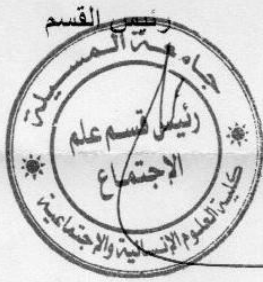 رئيس القسم
جامعة المسيلة
رئيس قسم علم
الإجتماع
كلية العلوم الإنسانية والإجتماعية